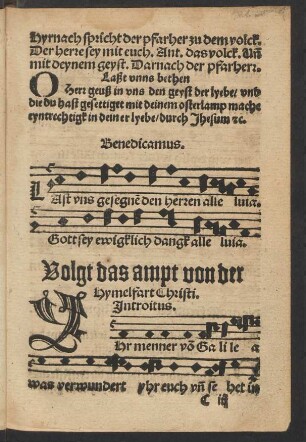 Hyrnach spricht der pfarher zu dem volck.
Der herre sey mit euch. Ant. das volck. Uñ
mit deynem geyst. Darnach der pfarherr.
Laßt vnns bethen
O Herr geuß in vns den geyst der lyebe/ vnd
die du hast gesettiget mit deinem osterlamp mache
eyntrechtigk in deiner lyebe/ durch Jhesum ꝛc.
Benedicamus.
LAst vns gesegnē den herren alle luia.
Gott sey ewigklich dangk alle luia.
Volgt das ampt von der
Hymelfart Christi.
Introitus.
Hr menner vō Ga li le a
was verwundert yhr euch vñ se het
C iij